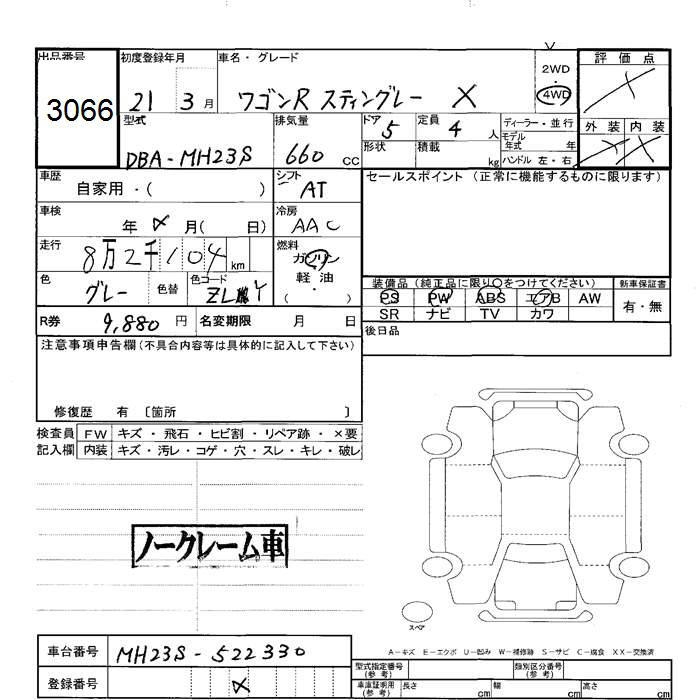 出品番号 初度登録年月 車名・グレード 2WD 評価点
3066 21 3月 ワゴンR スティングレー X 4WD
型式 排気量 ドア 定員 ディーラー・並行 外装 内装
DBA-MH23S 660 CC 5 4 人 モデル年式 年
形状 積載 kg ハンドル 左・右
車歴 シフト セールスポイント (正常に機能するものに限ります)
自家用・( ) AT
車検 年 月( 日) 冷房 AAC
走行 8万2千104 km 燃料 ガソリン
軽油
( ・ )
色 グレー 色替 色コード
装備品 (純正品に限り○をつけてください) 新車保証書
PS PW ABS エアB AW 有・無
SR ナビ TV カワ
R券 9,880 円 名変期限 月 日 後日品
注意事項申告欄(不具合内容等は具体的に記入して下さい)
修復歴 有 〔箇所 〕
検査員 FW キズ・飛石・ヒビ割・リペア跡・×要
記入欄 内装 キズ・汚レ・コゲ・穴・スレ・キレ・破レ
ノークレーム車
スペア
A-キズ E-エクボ U-凹み W-補修跡 S-サビ C-腐食 XX-交換済
車台番号 MH23S-522330 型式指定番号(参考) 類別区分番号(参考)
登録番号 車庫証明用(参考) 長さ cm 幅 cm 高さ cm